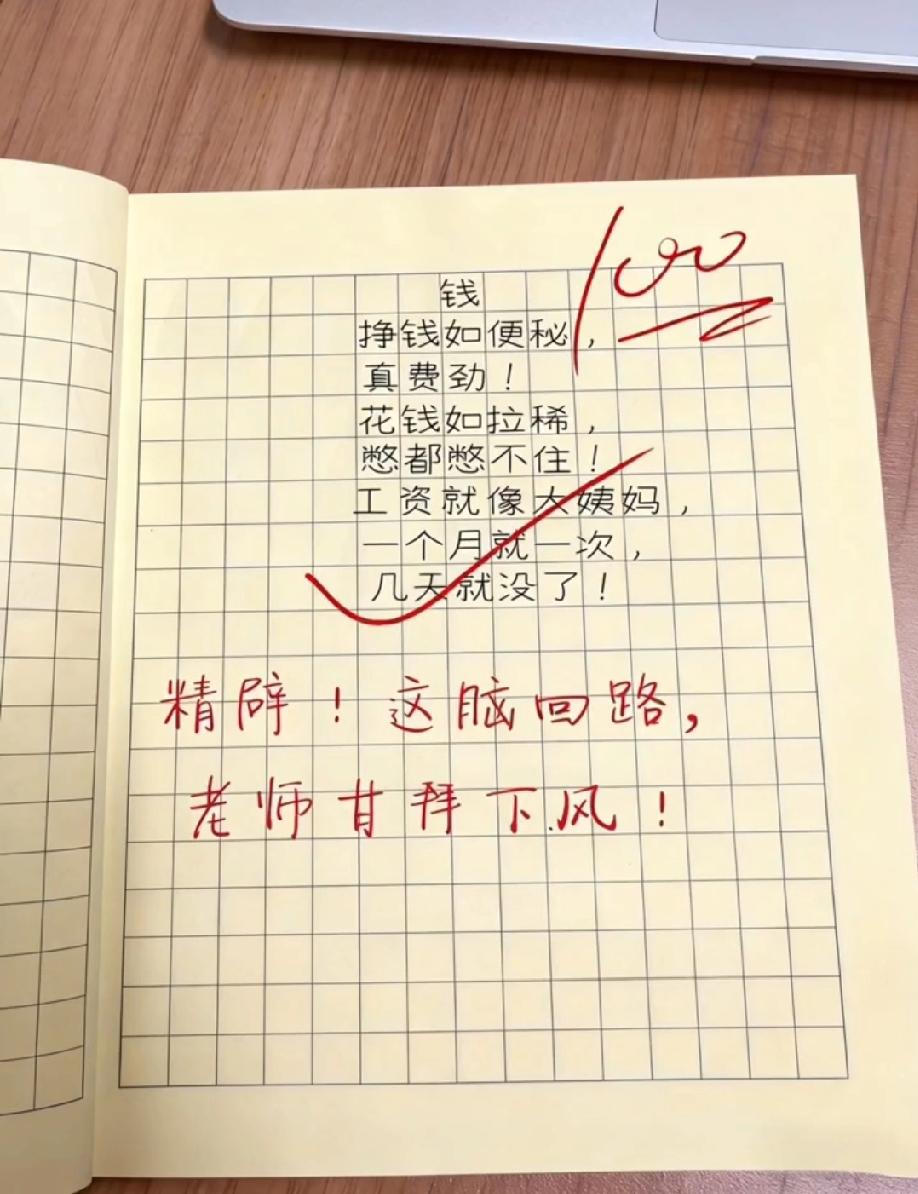 100
钱
挣钱如便秘，
真费劲！
花钱如拉稀，
憋都憋不住！
工资就像大姨妈，
一个月就一次，
几天就没了！
精辟！这脑回路，
老师甘拜下风！